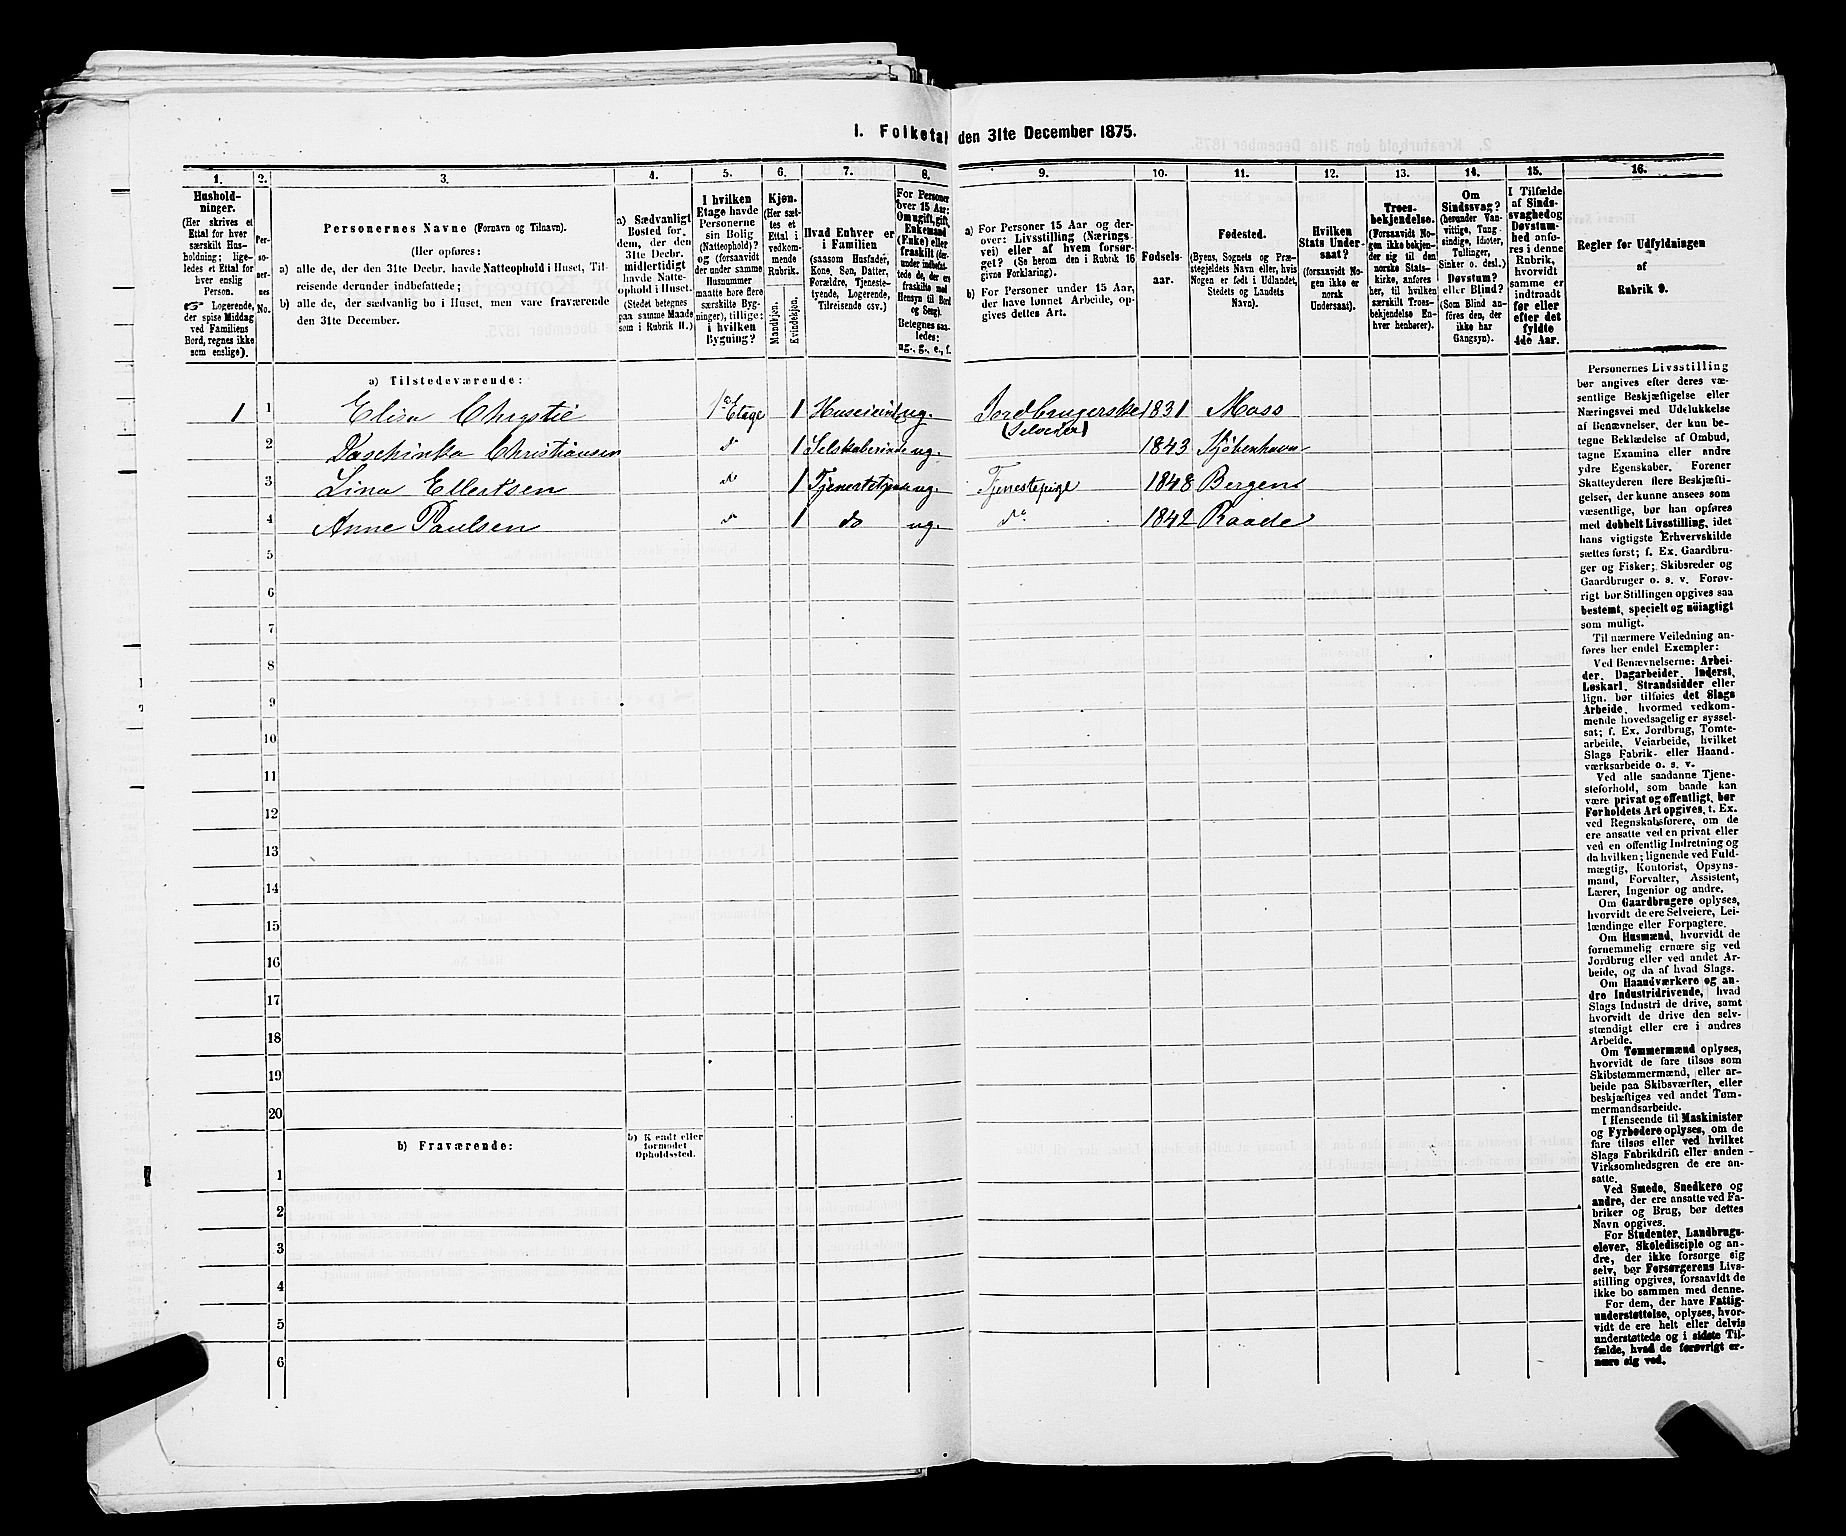 I. Folketal den 31te December 1875.
1.
Hushold-
ninger.
(Her skrives et
Ettal for hver
særskilt Hus-
holdning; lige-
ledes et Ettal for
hver enslig
Person.
☞ Logerende,
der spise Middag
ved Familiens
Bord, regnes ikke
som enslige).
2.
Per-
so-
ner-
nes
No.
3.
Personernes Navne (Fornavn og Tilnavn).
(Her opføres:
a) alle de, der den 31te Decbr. havde Natteophold i Huset, Til-
reisende derunder indbefattede;
b) alle de, der sædvanlig bo i Huset, men vare fraværende
den 31te December.
4.
a) Sædvanligt
Bosted for
dem, der den
31te Decbr.
midlertidigt
havde Natte-
ophold i Huset.
(Stedet betegnes
paa samme Maade
som i Rubrik 11.)
5.
I hvilken
Etage havde
Personerne
sin Bolig
(Natteophold)?
og (forsaavidt
der under samme
Husnummer
maatte høre flere
særskilte Byg-
ninger), tillige:
i hvilken
Bygning?
6.
Kjøn.
(Her sæt-
tes et
Ettal i
vedkom-
mende
Rubrik.
Mandkjøn.
Kvindekjøn.
7.
Hvad Enhver er
i Familien
(saasom Husfader,
Kone, Søn, Datter,
Forældre, Tjeneste-
tyende, Logerende,
Tilreisende osv.)
8.
For Personer
over 15 Aar:
Om ugift, gift,
Enkemand
(Enke) eller
fraskilt
Betegnes saa-
ledes:
ug., g., e., f.
9.
a) For Personer 15 Aar og der-
over: Livsstilling (Nærings-
vei) eller af hvem forsør-
get? (Se herom den i Rubrik 16
givne Forklaring).
b) For Personer under 15 Aar,
der have lønnet Arbeide, op-
gives dettes Art.
10.
Fødsels-
aar.
11.
Fødested.
(Byens, Sognets og Præ-
stegjeldets Navn eller, hvis
Nogen er født i Udlandet,
Stedets og Landets
Navn).
12.
Hvilken
Stats Under-
saat?
(forsaavidt No-
gen ikke er
norsk
Undersaat).
13.
Troes-
bekjendelse.
(Forsaavidt No-
gen ikke bekjen-
der sig til den
norske Stats-
kirke, anføres
her, til hvilken
særskilt Troes-
bekjendelse En-
hver henhører).
14.
Om
Sindssvag?
(herunder Van-
vittige, Tung-
sindige, Idioter,
Tullinger,
Sinker o. desl.)
Døvstum?
eller Blind?
(Som Blind an-
føres den, der
ikke har
Gangsyn).
15.
I Tilfælde
af Sinds-
svaghed og
Døvstum-
hed anfø-
res i denne
Rubrik,
hvorvidt
samme er
indtraadt
før eller
efter det
fyldte
4de Aar.
16.
Regler for Udfyldningen
af
Rubrik 9.
a) Tilstedeværende:
1 1 Elisa Chrystie 1ste Etage 1 Huseierinde ug. Jordbrugerske (Selveier) 1831 Moss
2 Daschinka Christiansen do 1 Selskaberinde ug. 1843 Kjøbenhavn
3 Lina Ellertsen do 1 Tjenestetyende ug. Tjenestepige 1848 Bergen
4 Anne Paulsen do 1 do ug. do 1842 Raade
5
6
7
8
9
10
11
12
13
14
15
16
17
18
19
20
b) Fraværende:
b) Kjendt eller
formodet
Opholdssted.
1
2
3
4
5
6
Personernes Livsstilling
bør angives efter deres væ-
sentlige Beskjæftigelse eller
Næringsvei med Udelukkelse
af Benævnelser, der kun be-
tegne Beklædelse af Ombud,
tagne Examina eller andre
ydre Egenskaber. Forener
Skatteyderen flere Beskjæfti-
gelser, der kunne ansees som
væsentlige, bør han opføres
med dobbelt Livsstilling, idet
hans vigtigste Erhvervskilde
sættes først; f. Ex. Gaardbru-
ger og Fisker; Skibsreder og
Gaardbruger o. s. v. Forøv-
rigt bør Stillingen opgives saa
bestemt, specielt og nøiagtigt
som muligt.
Til nærmere Veiledning an-
føres her endel Exempler:
Ved Benævnelserne: Arbei-
der, Dagarbeider, Inderst,
Løskarl, Strandsidder eller
lign. bør tilføies det Slags
Arbeide, hvormed vedkom-
mende hovedsagelig er syssel-
sat; f. Ex. Jordbrug, Tomte-
arbeide, Veiarbeide, hvilket
Slags Fabrik- eller Haand-
værksarbeide o. s. v.
Ved alle saadanne Tjene-
steforhold, som baade kan
være privat og offentligt, bør
Forholdets Art opgives, t. Ex.
ved Regnskabsførere, om de
ere ansatte ved en privat eller
ved en offentlig Indretning og
da hvilken; lignende ved Fuld-
mægtig, Kontorist, Opsyns-
mand, Forvalter, Assistent,
Lærer, Ingeniør og andre.
Om Gaardbrugere oplyses,
hvorvidt de ere Selveiere, Lei-
lændinge eller Forpagtere.
Om Husmænd, hvorvidt de
fornemmelig ernære sig ved
Jordbrug eller ved andet Ar-
beide, og da af hvad Slags.
Om Haandværkere og an-
dre Industridrivende, hvad
Slags Industri de drive, samt
hvorvidt de drive den selv-
stændigt eller ere i andres
Arbeide.
Om Tømmermænd oplyses,
hvorvidt de fare tilsøs som
Skibstømmermænd, eller ar-
beide paa Skibsværfter, eller
beskjæftiges ved andet Tøm-
mermandsarbeide.
I Henseende til Maskinister
og Fyrbødere oplyses, om de
fare tilsøs eller ved hvilket
Slags Fabrikdrift eller anden
Virksomhedsgren de ere an-
satte.
Ved Smede, Snedkere og
andre, der ere ansatte ved Fa-
briker og Brug, bør dettes
Navn opgives.
For Studenter, Landbrugs-
elever, Skoledisciple og an-
dre, der ikke forsørge sig
selv, bør Forsørgerens Livs-
stilling opgives, forsaavidt de
ikke bo sammen med denne.
For dem, der have Fattig-
understøttelse, oplyses, hvor-
vidt de ere helt eller delvis
understøttede og i sidste Til-
fælde, hvad de forøvrigt er-
nære sig ved.